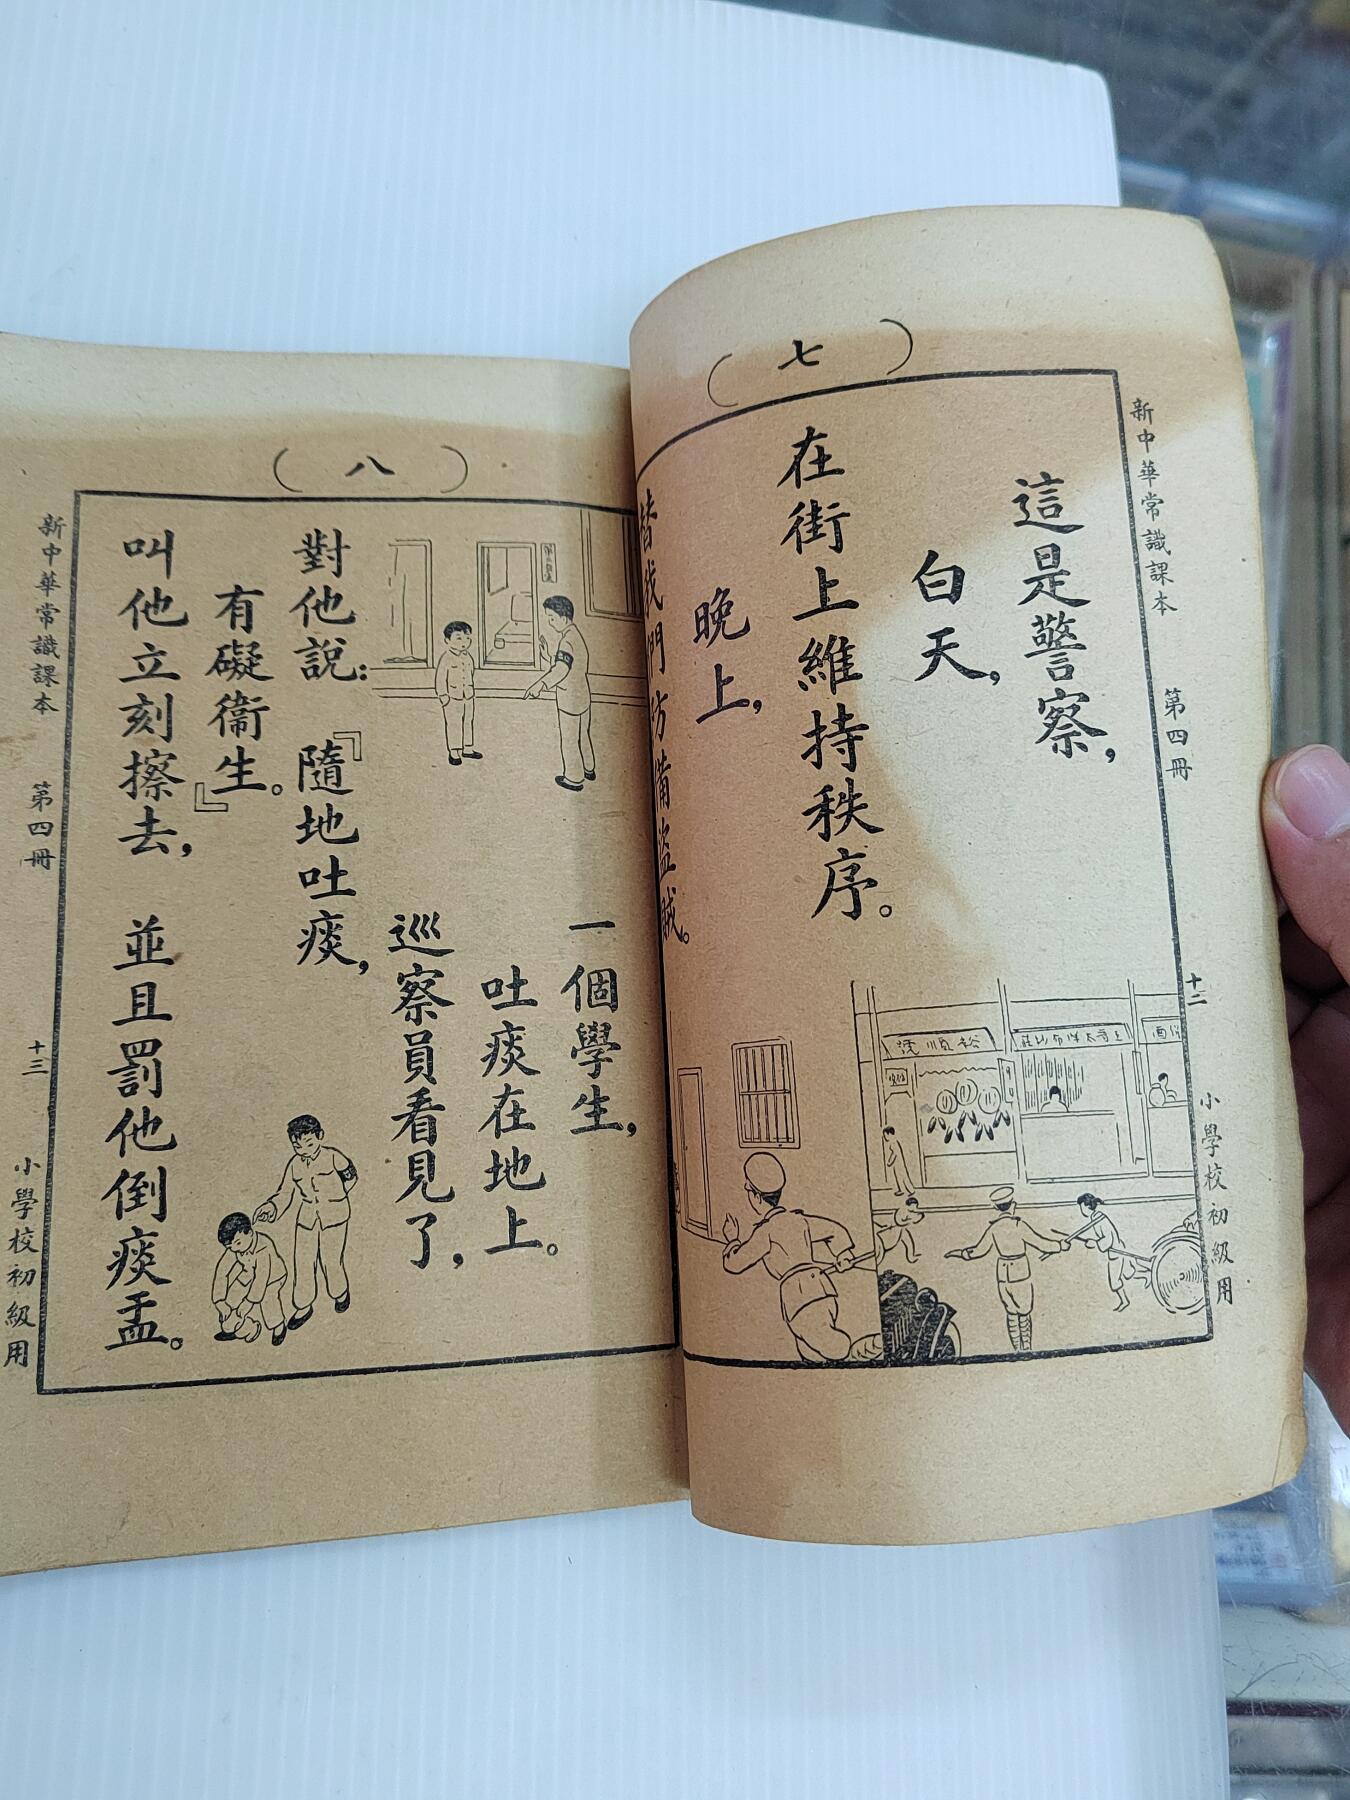 新中華常識課本 第四冊 十二 小學校初級用
（七）
這是警察，
白天，
在街上維持秩序。
晚上，
替我們防備盜賊。
（八）
一個學生，
吐痰在地上。
巡察員看見了，
對他說：『隨地吐痰，
有礙衞生。』
叫他立刻擦去，並且罰他倒痰盂。
新中華常識課本 第四冊 十三 小學校初級用